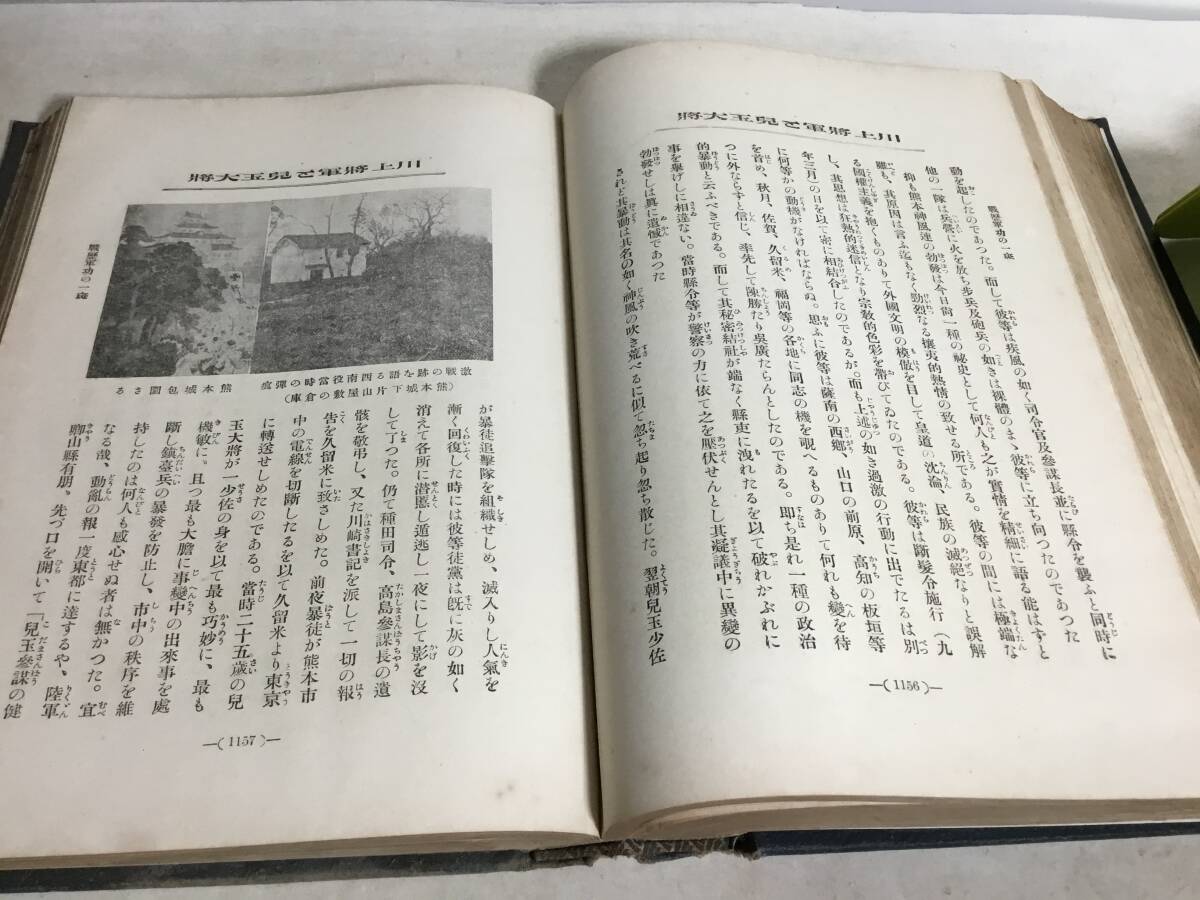 川上將軍と兒玉大將
戰歷軍功の一齣
動を起したのであつた。而して彼等は疾風の如く司令官及參謀長並に縣令を襲ふと同時に
他の一隊は兵營に火を放ち步兵及砲兵の如きは裸體のまゝ彼等に立ち向つたのであつた
抑も熊本神風連の勃發は今日尙一種の祕史として何人も之が實情を精細に語る能はすと
雖も、其原因は言ふ迄もなく勁烈なる攘夷的熱情の致せる所である。彼等の間には極端な
る國權主義を抱くものありて外國文明の模倣を目して皇道の沈淪、民族の滅絕なりと誤解
し、其思想は狂熱的迷信となり宗敎的色彩を帶びてゐたのである。彼等は斷髮令施行(九
年三月)の日を以て密に相結合したのであるが。而も上述の如き過激の行動に出でたるは別
に何等かの動機がなければならぬ。思ふに彼等は薩南の西鄕、山口の前原、高知の板垣等
を首め、秋月、佐賀、久留米、福岡等の各地に同志の機を覗へるものありて何れも變を待
つに外ならずと信じ、率先して陳勝たり吳廣たらんとしたのである。卽ち是れ一種の政治
的暴動と云ふべきである。而して其秘密結社が端なく縣吏に洩れたるを以て破れかぶれに
事を擧げしに相違ない。當時縣令等が警察の力に依て之を壓伏せんとし其凝議中に異變の
勃發せしは眞に遺憾であつた
されど其暴動は其名の如く神風の吹き荒べるに似て忽ち起り忽ち散じた。翌朝兒玉少佐
—(1156)—
川上將軍と兒玉大將
戰歷軍功の一齣
激戰の跡を語る西南役當時の彈痕
(熊本城下片山屋敷の倉庫)
熊本城包圍さる
が暴徒追擊隊を組織せしめ、滅入りし人氣を
漸く回復した時には彼等徒黨は旣に灰の如く
消えて各所に潜慝し遁逃し一夜にして影を沒
して了つた。仍て種田司令、高島參謀長の遺
骸を敬弔し、又た川崎書記を派して一切の報
告を久留米に致さしめた。前夜暴徒が熊本市
中の電線を切斷したるを以て久留米より東京
に轉送せしめたのである。當時二十五歲の兒
玉大將が一少佐の身を以て最も巧妙に、最も
機敏に、且つ最も大膽に事變中の出來事を處
斷し鎭臺兵の暴發を防止し、市中の秩序を維
持したのは何人も感心せぬ者は無かつた。宜
なる哉、動亂の報一度東都に達するや、陸軍
卿山縣有朋、先づ口を開いて「兒玉參謀の健
—(1157)—